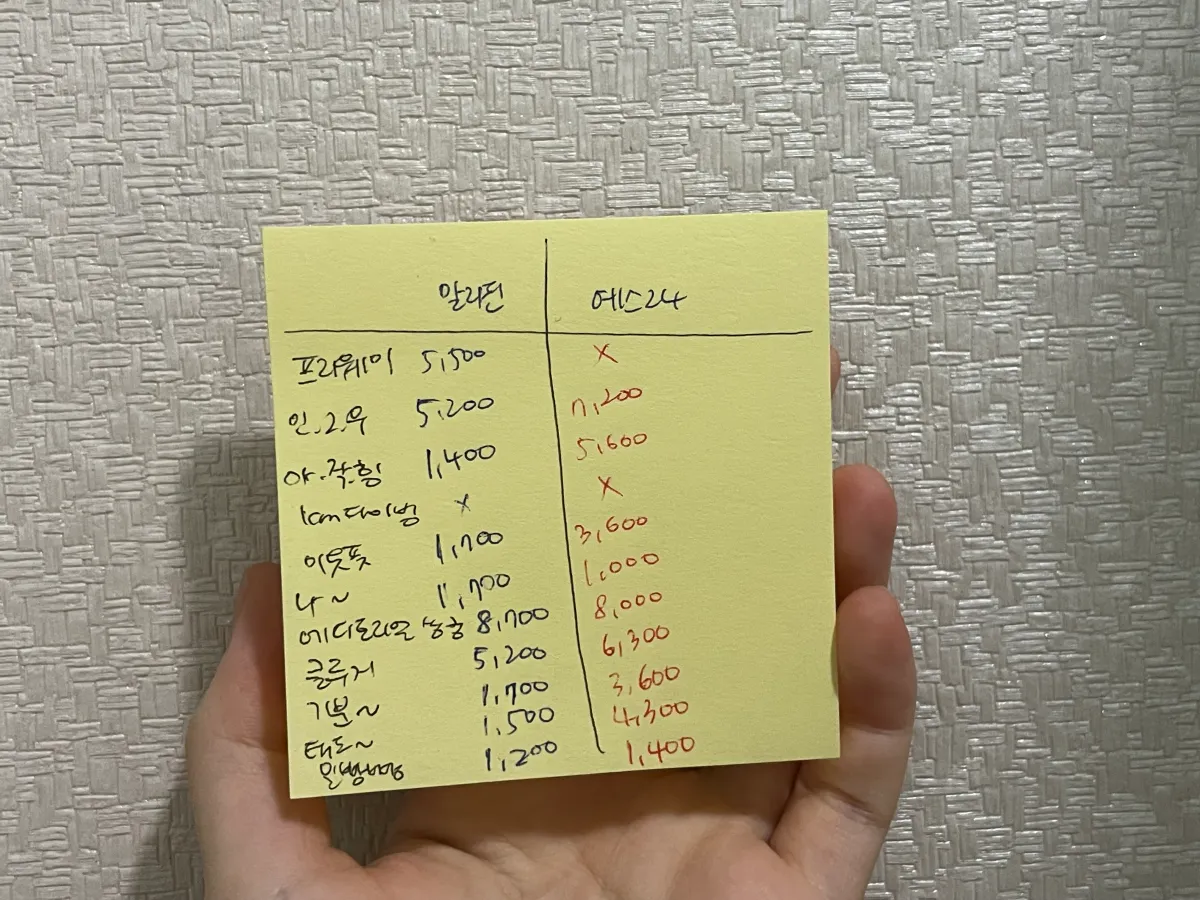 알라딘 예스24
프리웨이 5,500 X
인.2.우 5,200 7,200
아.작.힘 1,400 5,600
1cm다이빙 X X
아웃풋 1,700 3,600
나~ 1,700 1,000
에디토리얼 씽킹 8,700 8,000
클루지 5,200 6,300
기분~ 1,700 3,600
태도~ 1,500 4,300
1,200 1,400